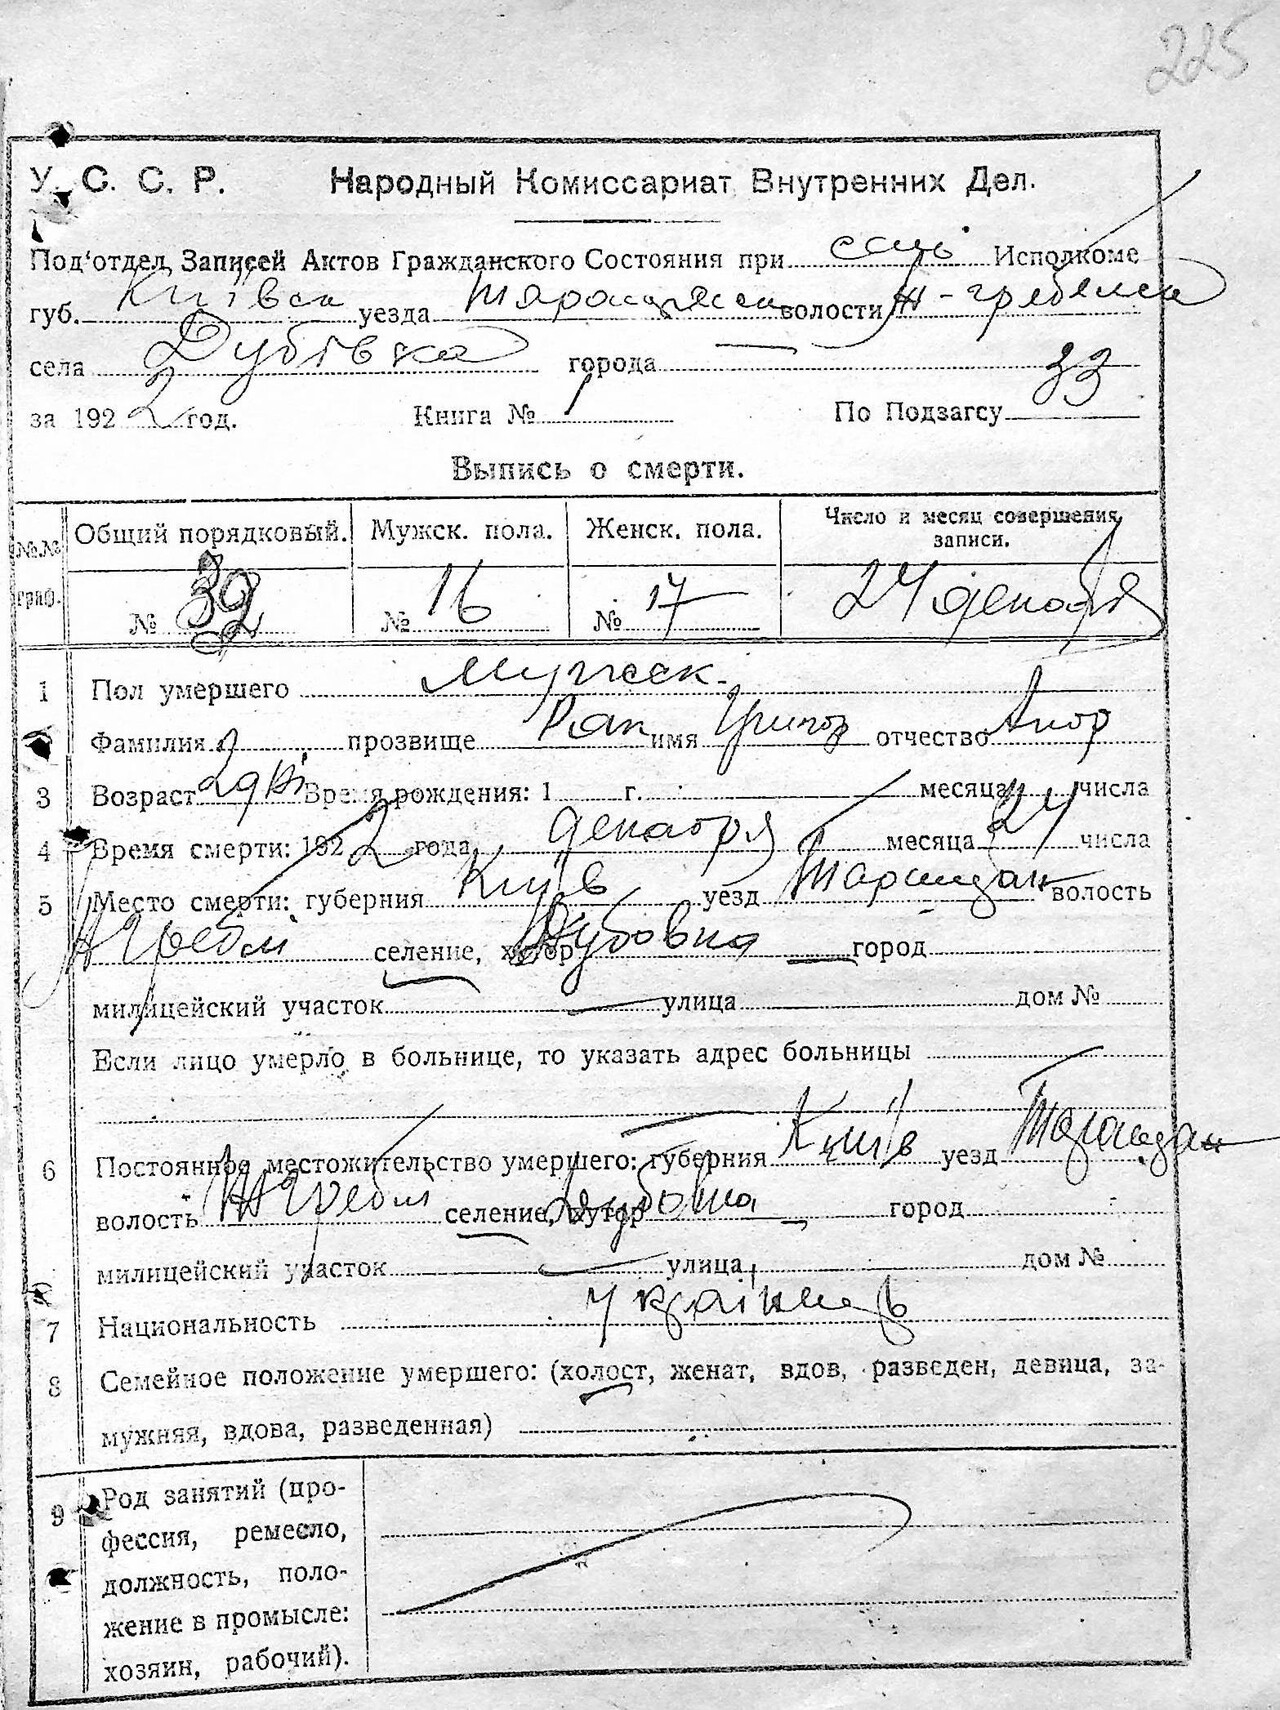 225
У. С. С. Р. Народный Комиссариат Внутренних Дел.
Под'отдел Записей Актов Гражданского Состояния при Исполкоме
губ. Київск уезда Таращанск волости Ж-гребелск
села Дубівка города
за 1922 год. Книга № 1 По Подзагсу 33
Выпись о смерти.
№№ граф. Общий порядковый. Мужск. пола. Женск. пола. Число и месяц совершения записи.
№ 32 № 16 № 17 24 декабря
1 Пол умершего мужеск.
Фамилия прозвище Рак имя Григор отчество
3 Возраст Время рождения: 1 г. месяца числа
4 Время смерти: 1922 года декабря месяца 24 числа
5 Место смерти: губерния Київ уезд волость
Ж Гребли селение, хутор Дубовка город
милицейский участок улица дом №
Если лицо умерло в больнице, то указать адрес больницы
6 Постоянное местожительство умершего: губерния Київ уезд
волость Ж Гребли селение, хутор город
милицейский участок улица дом №
7 Национальность українець
8 Семейное положение умершего: (холост, женат, вдов, разведен, девица, за-
мужняя, вдова, разведенная)
9 Род занятий (про-
фессия, ремесло,
должность, поло-
жение в промысле:
хозяин, рабочий).